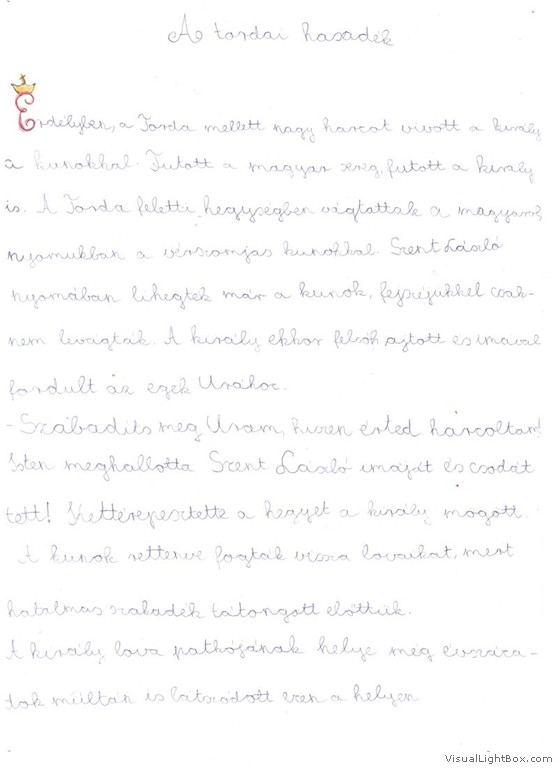 A tordai hasadék
Erdélyben, a Torda mellett nagy harcot vívott a király
a kunokkal. Futott a magyar sereg, futott a király
is. A Torda feletti hegységben vágtattak a magyarok,
nyomukban a vérszomjas kunokkal. Szent László
nyomában lihegtek már a kunok, fejszéjükkel csak-
nem levágták. A király ekkor felsóhajtott és imával
fordult az egek Urához.
- Szabadíts meg Uram, hiszen érted harcoltam!
Isten meghallotta Szent László imáját és csodát
tett! Kettérepesztette a hegyet a király mögött.
A kunok rettenve fogták vissza lovaikat, mert
hatalmas szakadék tátongott előttük.
A király lova patkójának helye még évszáza-
dok múltán is látszódott ezen a helyen.
VisualLightBox.com